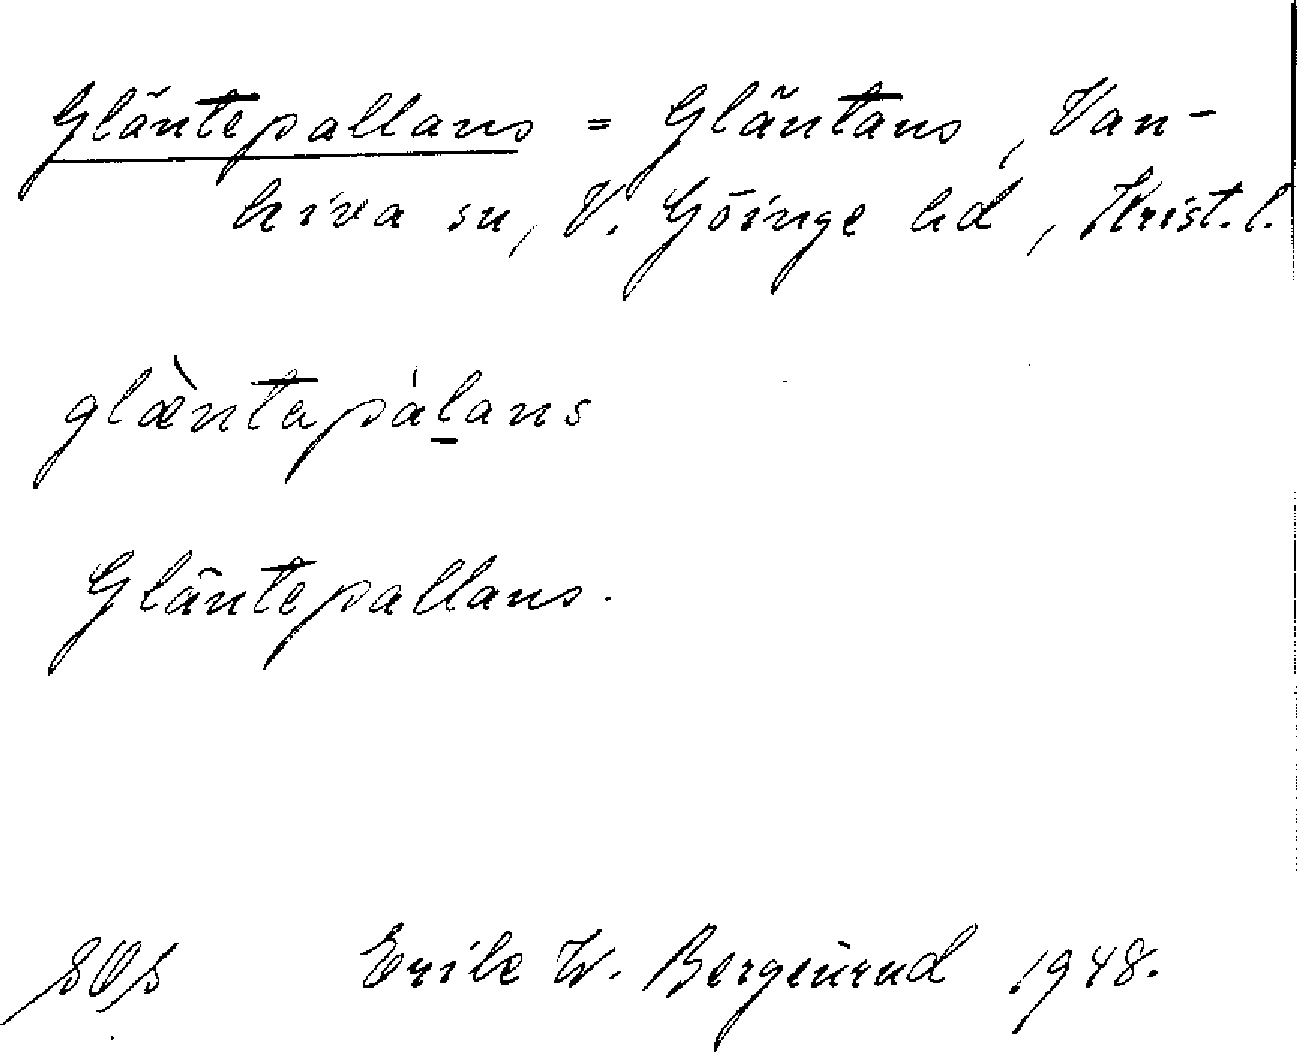 Gläntepallans = Gläntans, Van-
kiva sn, V. Göinge hd, Krist. l.
glæ̀ntapálans
Gläntepallans.
Erik W. Bergeürud 1948.